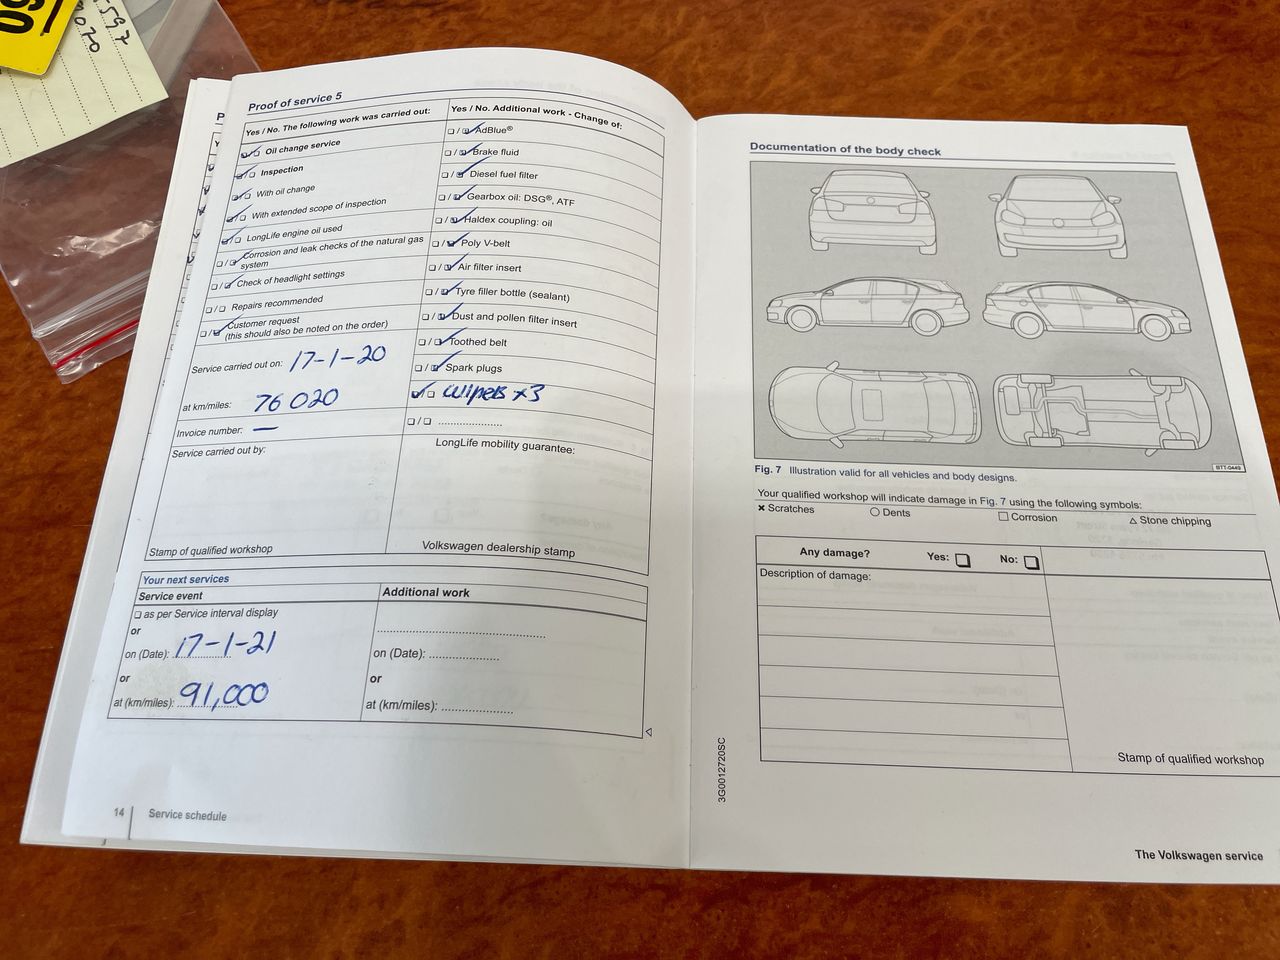 5597
2020
Proof of service 5
Yes / No. The following work was carried out:
Oil change service
Inspection
With oil change
With extended scope of inspection
LongLife engine oil used
Corrosion and leak checks of the natural gas
system
Check of headlight settings
Repairs recommended
Customer request
(this should also be noted on the order)
Service carried out on: 17-1-20
at km/miles: 76020
Invoice number: —
Service carried out by:
Stamp of qualified workshop
Yes / No. Additional work - Change of:
AdBlue®
Brake fluid
Diesel fuel filter
Gearbox oil: DSG®, ATF
Haldex coupling: oil
Poly V-belt
Air filter insert
Tyre filler bottle (sealant)
Dust and pollen filter insert
Toothed belt
Spark plugs
wipers x3
LongLife mobility guarantee:
Volkswagen dealership stamp
Your next services
Service event
as per Service interval display
or
on (Date): 17-1-21
or
at (km/miles): 91,000
Additional work
on (Date):
or
at (km/miles):
14
Service schedule
Documentation of the body check
BTT-0449
Fig. 7 Illustration valid for all vehicles and body designs.
Your qualified workshop will indicate damage in Fig. 7 using the following symbols:
× Scratches ○ Dents □ Corrosion △ Stone chipping
Any damage? Yes: No:
Description of damage:
Stamp of qualified workshop
3G0012720SC
The Volkswagen service